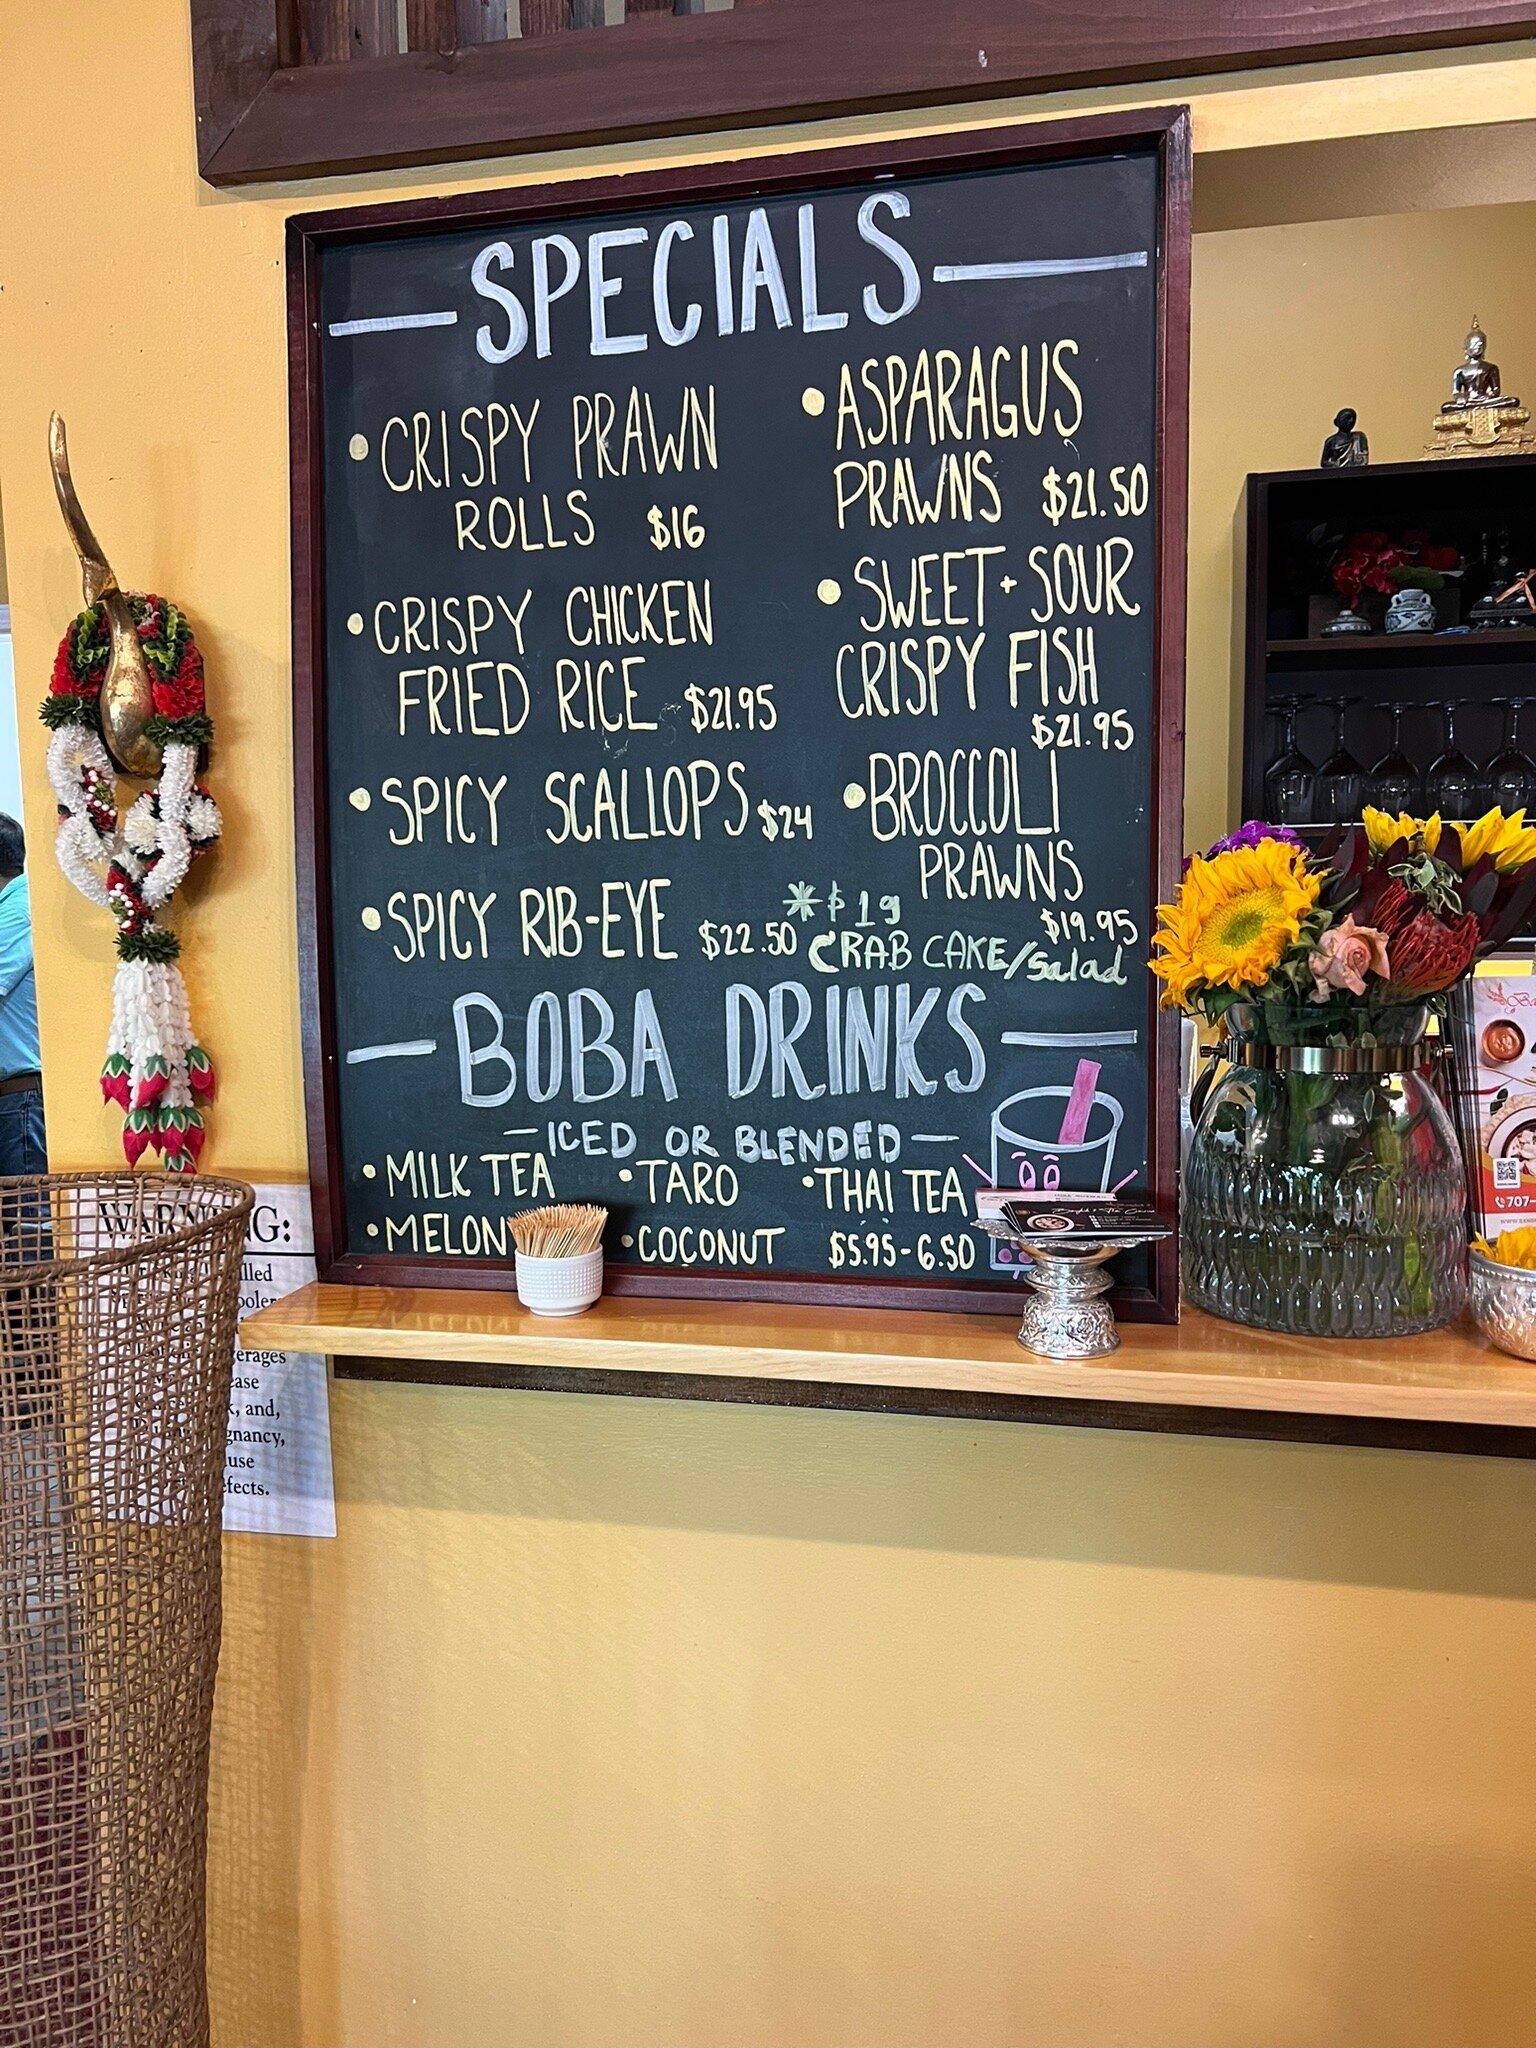 SPECIALS
• CRISPY PRAWN
ROLLS $16
• CRISPY CHICKEN
FRIED RICE $21.95
• SPICY SCALLOPS $24
• SPICY RIB-EYE $22.50
• ASPARAGUS
PRAWNS $21.50
• SWEET + SOUR
CRISPY FISH
$21.95
• BROCCOLI
PRAWNS
$19.95
* $19
CRAB CAKE/Salad
BOBA DRINKS
— ICED OR BLENDED —
• MILK TEA • TARO • THAI TEA
• MELON • COCONUT $5.95-6.50
WARNING:
and,
707-